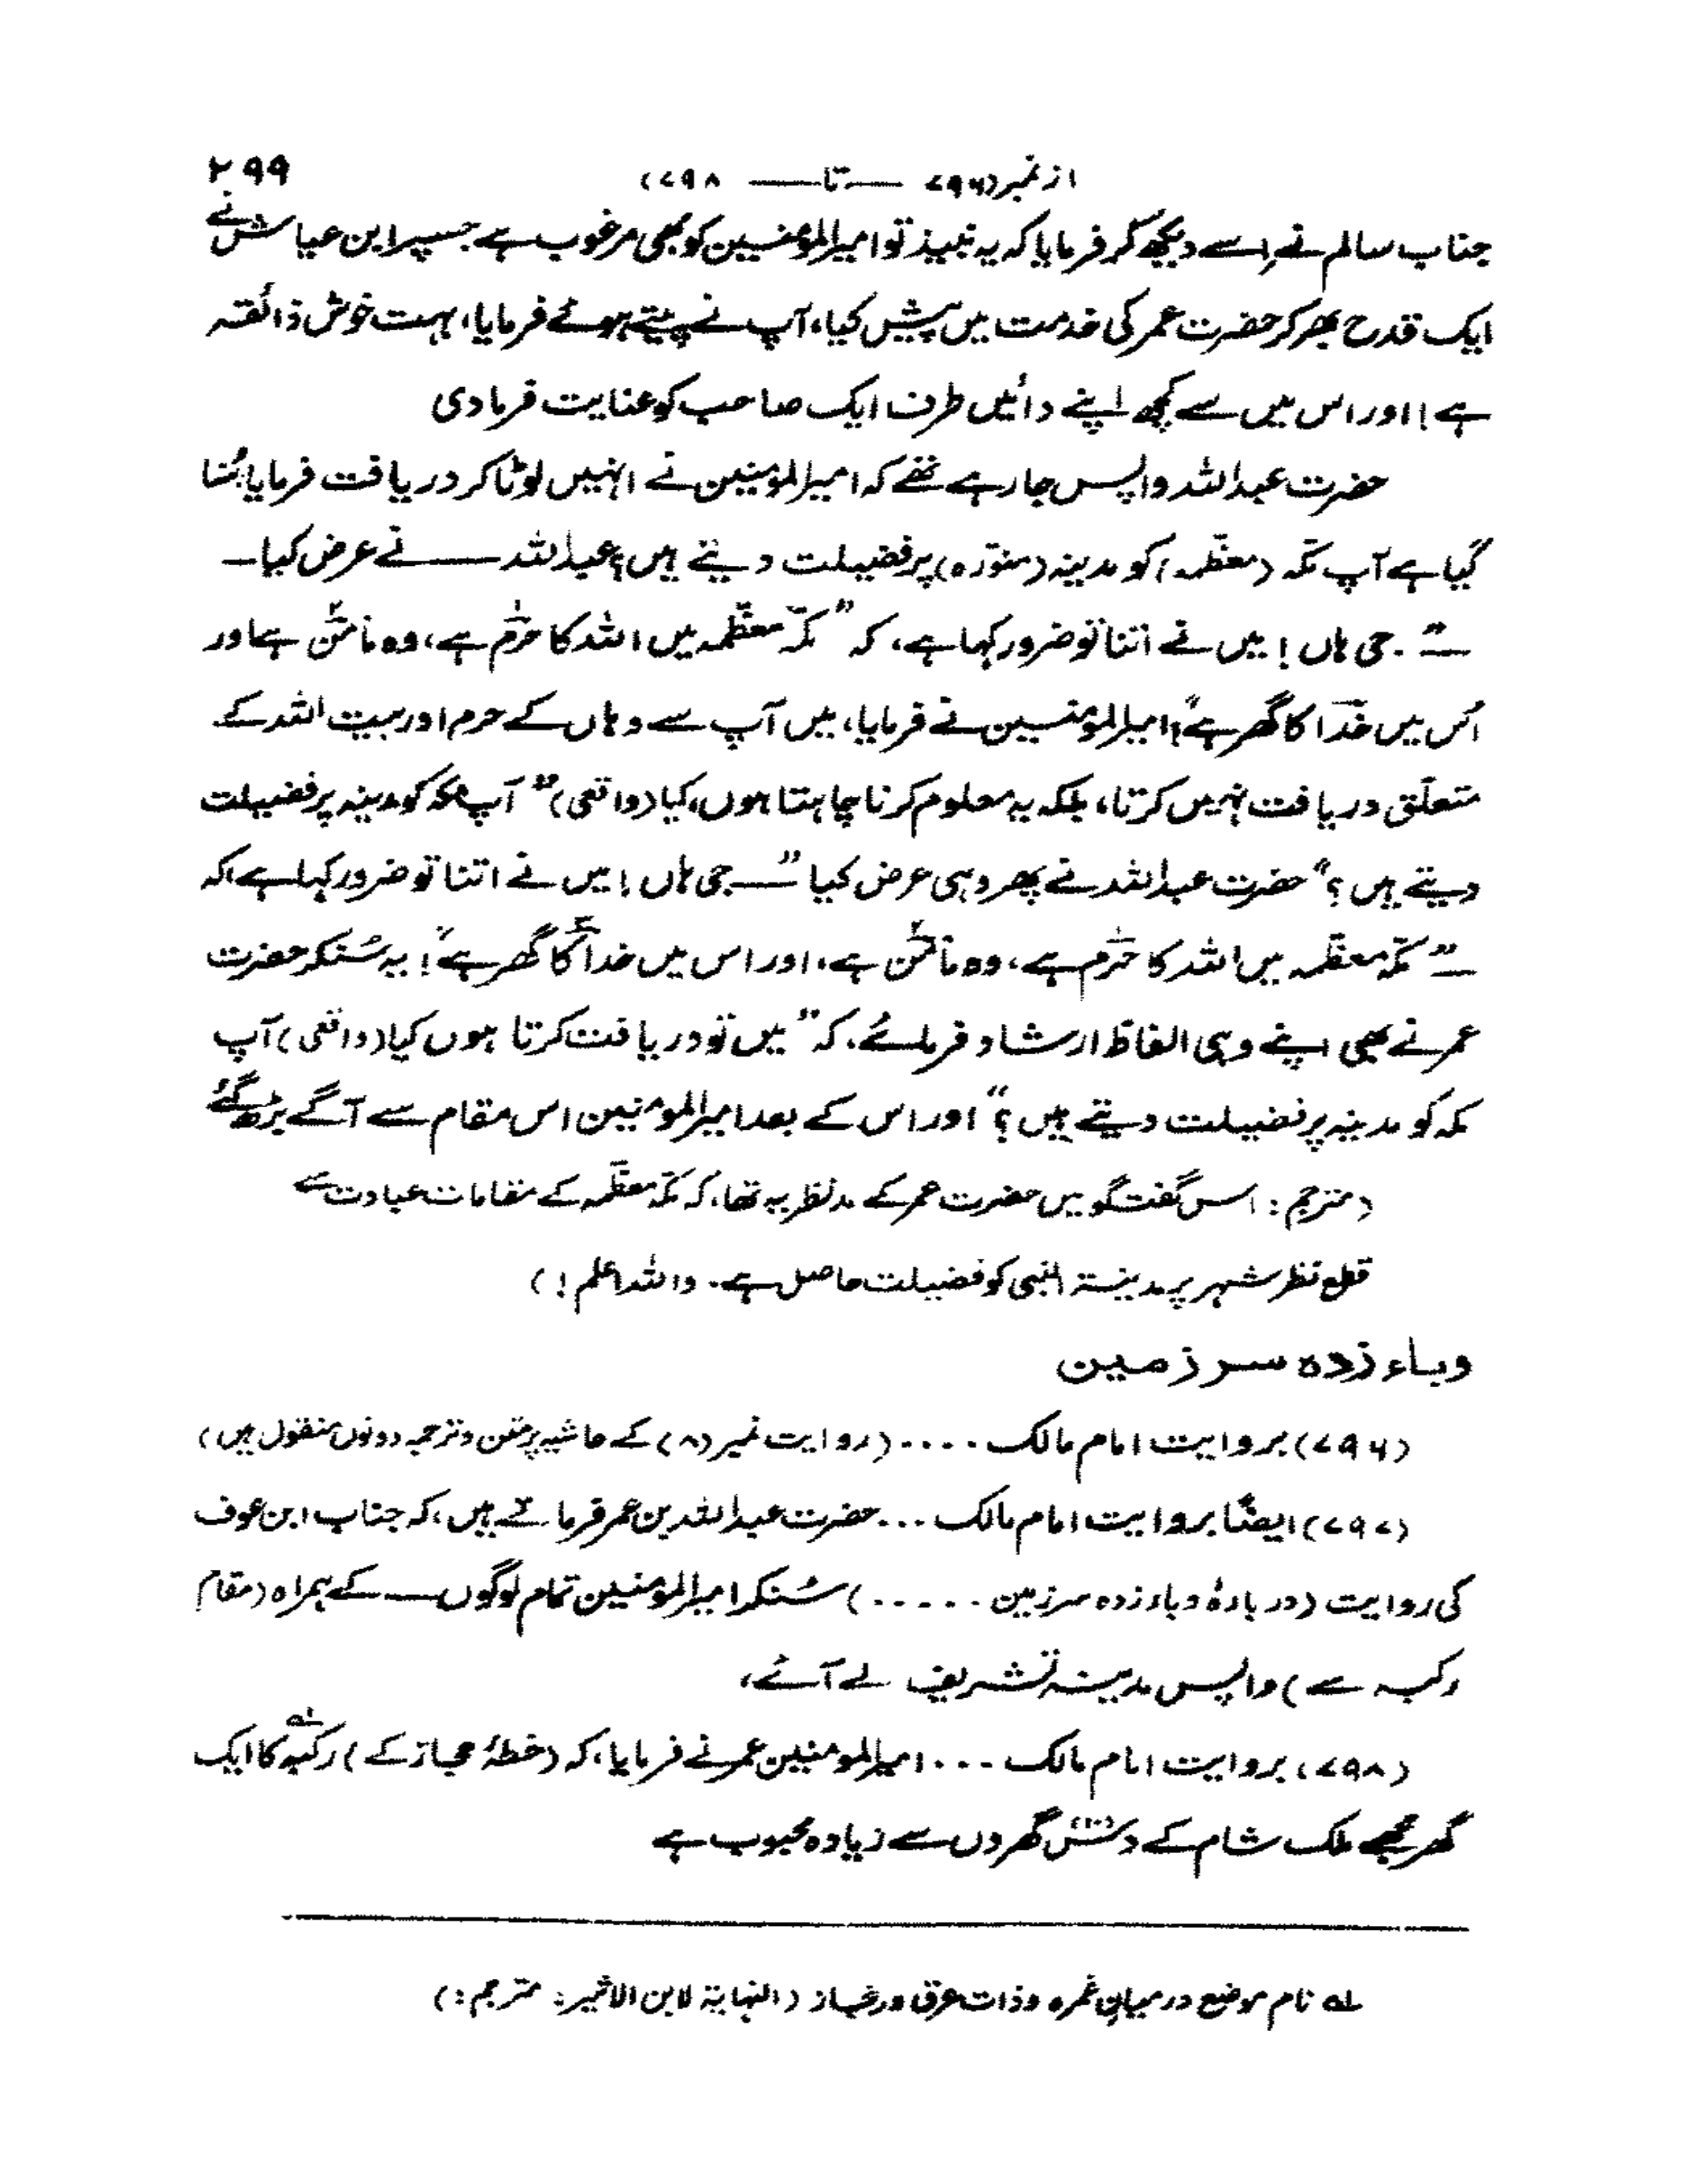 ۲۹۹
از نمبر(۷۹۶ ــــ تا ــــ ۷۹۸)
جناب سالم نے اِسے دیکھ کر فرمایا کہ یہ نبیذ تو امیرالمؤمنسین کو بھی مرغوب ہے جسپر ابن عیاش نے
ایک قدح بھر کر حضرت عمر کی خدمت میں پیش کیا، آپ نے پیتے ہوئے فرمایا، بہت خوش ذائقہ
ہے! اور اس میں سے کچھ اپنے دائیں طرف ایک صاحب کو عنایت فرما دی
حضرت عبداللہ واپس جا رہے تھے کہ امیرالمومنین نے انہیں لوٹا کر دریافت فرمایا سُنا
گیا ہے آپ مکّہ (معظّمہ) کو مدینہ (منوّرہ) پر فضیلت دیتے ہیں؟ عبداللہ ــــ نے عرض کیا ــ
ــ"۔ جی ہاں! میں نے اتنا تو ضرور کہا ہے، کہ "مکّہ معظّمہ میں اللہ کا حَرَم ہے، وہ مَامَن ہے اور
اُس میں خُدَا کا گھر ہے"! امیرالمومنسین نے فرمایا، میں آپ سے وہاں کے حرم اور بیت اللہ کے
متعلّق دریافت نہیں کرتا، بلکہ یہ معلوم کرنا چاہتا ہوں، کیا (واقعی) "آپ مکہ کو مدینہ پر فضیلت
دیتے ہیں؟" حضرت عبداللہ نے پھر وہی عرض کیا "ــ جی ہاں! میں نے اتنا تو ضرور کہا ہے کہ
ــ" مکّہ معظّمہ میں اللہ کا حَرَم ہے، وہ مَامَن ہے، اور اس میں خدا کا گھر ہے"! یہ سُنکر حضرت
عمر نے بھی اپنے وہی الفاظ ارشاد فرمائے، کہ "میں تو دریافت کرتا ہوں کیا (واقعی) آپ
مکہ کو مدینہ پر فضیلت دیتے ہیں؟" اور اس کے بعد امیرالمومنین اس مقام سے آگے بڑھ گئے
(مترجم: اس گفتگو میں حضرت عمر کے مدنظر یہ تھا، کہ مکّہ معظّمہ کے مقامات عبادت سے
قطع نظر شہر پر مدینۃ النبی کو فضیلت حاصل ہے۔ واللہ اعلم!)
وباء زدہ سر زمین
(۷۹۶) بروایت امام مالک ۔۔۔۔ (روایت نمبر (۸) کے حاشیہ پر متن و ترجمہ دونوں منقول ہیں)
(۷۹۷) ایضًا بروایت امام مالک ۔۔۔ حضرت عبداللہ بن عمر فرماتے ہیں، کہ جناب ابن عوف
کی روایت (دربارۂ وباء زدہ سرزمین ۔۔۔۔۔) سُنکر امیرالمؤمنین تمام لوگوں ــ کے ہمراہ (مقام
رکبہ سے) واپس مدینہ تشریف لے آئے،
(۷۹۸) بروایت امام مالک ۔۔۔ امیرالمومنین عمر نے فرمایا، کہ (خطۂ حجاز کے) رکبہ لہ کا ایک
گھر مجھے ملک شام کے دس گھروں سے زیادہ محبوب ہے
لہ نام موضع درمیان غمرہ و ذات عرق در حجاز (النہایۃ لابن الاثیر: مترجم:)